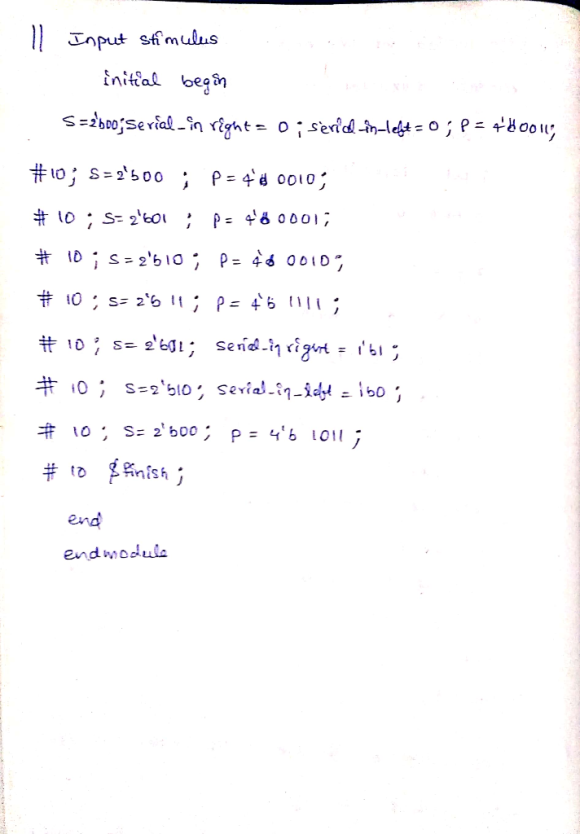 // Input stimulus
initial begin
S=2'b00; Serial_in right = 0 ; serial_in_left = 0 ; P = 4'b0011;
#10; S=2'b00 ; P = 4'b 0010;
# 10 ; S= 2'b01 ; P= 4'b 0001;
# 10 ; S = 2'b10 ; P= 4'b 0010;
# 10 ; S= 2'b 11 ; P= 4'b 1111 ;
# 10 ; S= 2'b01; serial_in right = 1'b1 ;
# 10 ; S=2'b10; serial_in_left = 1b0 ;
# 10 ; S= 2'b00 ; P = 4'b 1011 ;
# 10 $finish ;
end
endmodule